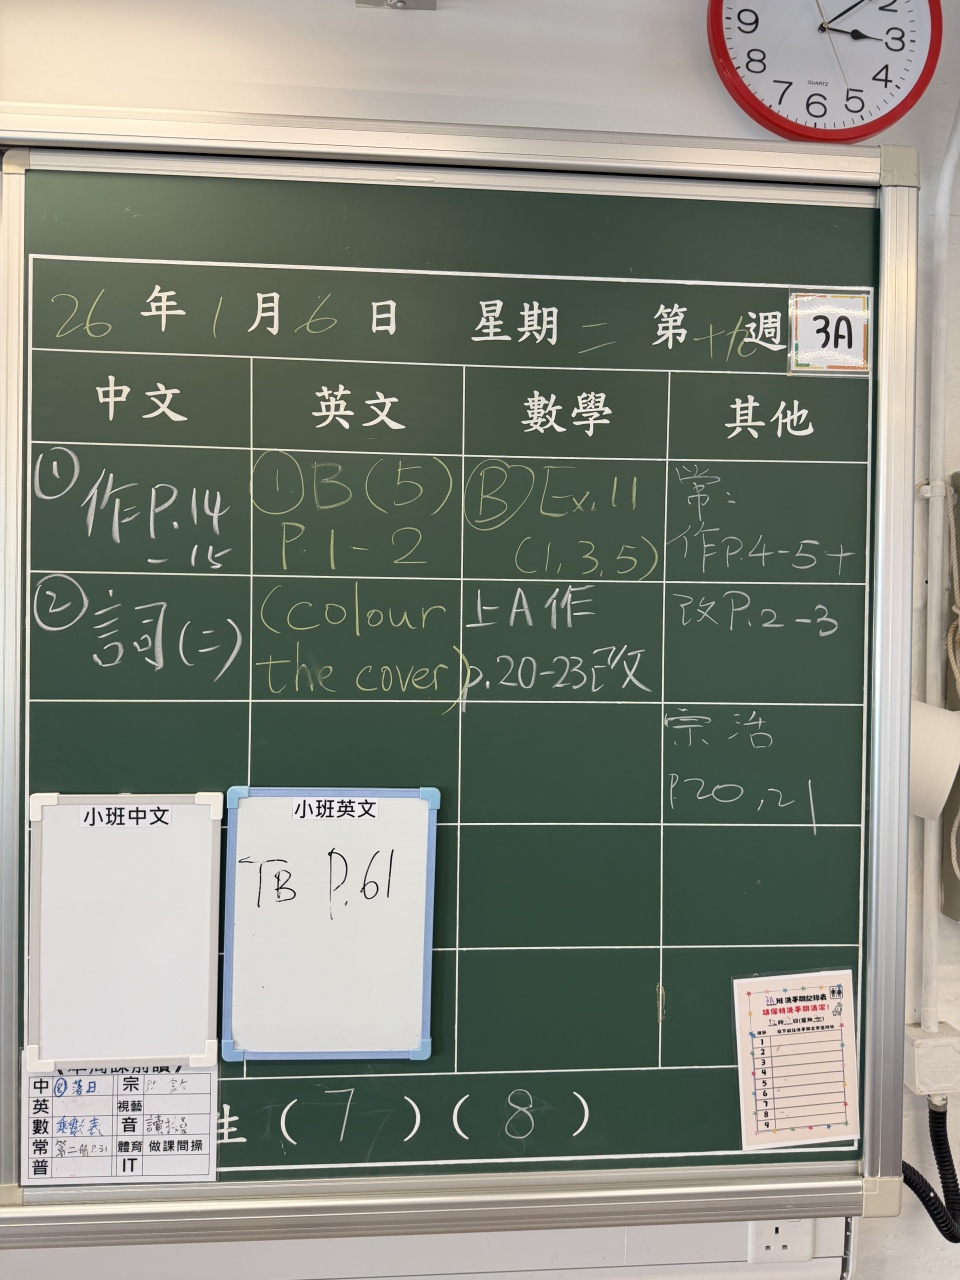 9 8 7 6 5 4 3 2
QUARTZ
26 年 1 月 6 日 星期 二 第 十九 週
3A
中文 英文 數學 其他
① 作P.14
- 15
② 詞(二)
① B(5)
P.1-2
(colour
the cover)
Ⓑ Ex.11
(1,3,5)
上A作
p.20-23改
常:
作P.4-5+
改P.2-3
宗 活
P.20,21
小班中文
小班英文
TB P.61
中 宗
英 視藝
數 乘數表 音
常 第二冊P.31 體育 做課間操
普 IT
生 (7) (8)
3A班洗手間記錄表
請保持洗手間清潔!
1
2
3
4
5
6
7
8
9